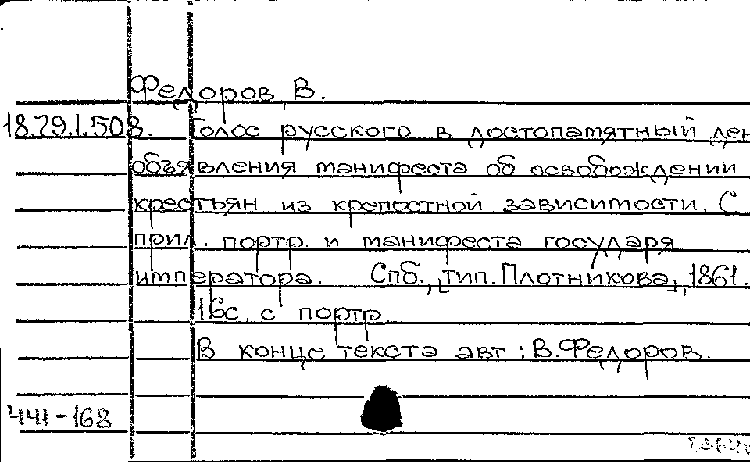 Федоров, В.
18.79.1.508. Голос русского в достопамятный ден
объявления манифеста об освобождении
крестьян из крепостной зависимости. С
прил. портр. и манифеста государя
императора. Спб., тип. Плотникова, 1861.
16с. с портр.
В конце текста авт: В.Федоров.
441-168